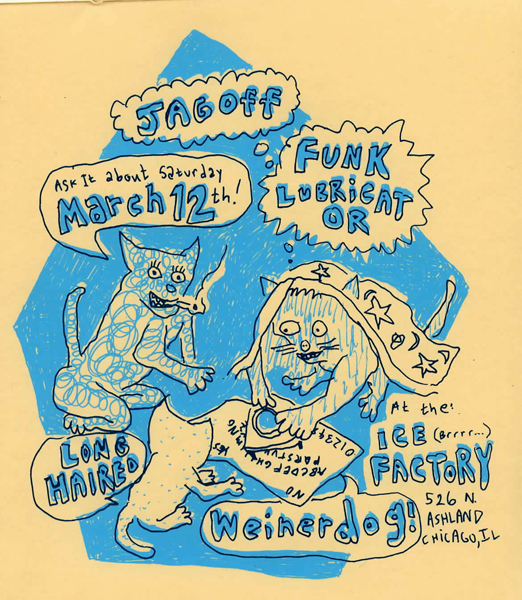 JAGOFF
FUNK
LUBRICAT
OR
Ask It about Saturday
March 12th!
LONG
HAIRED
YES
NO
Weinerdog!
At the:
ICE (Brrrr...)
FACTORY
526 N.
ASHLAND
CHICAGO, IL